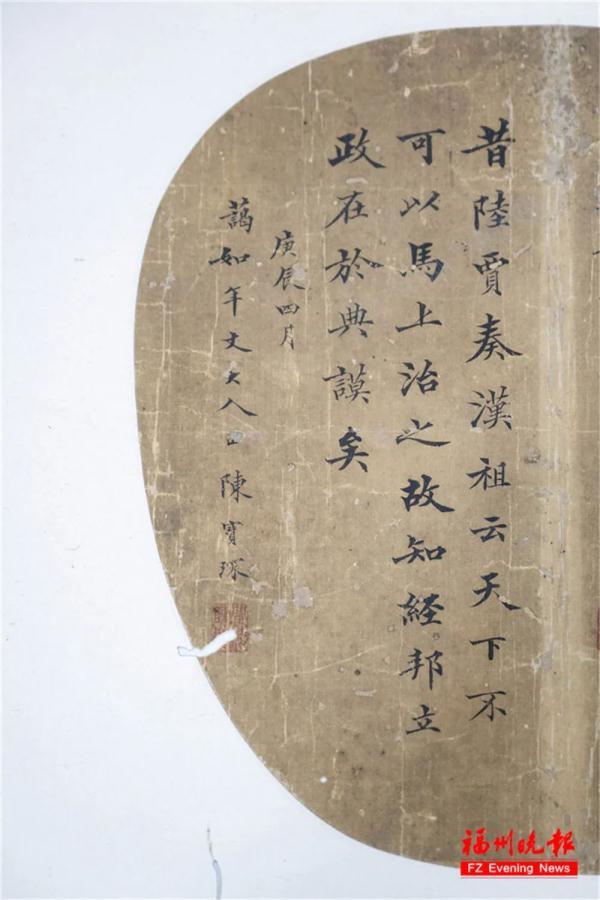 昔陸賈奏漢祖云天下不
可以馬上治之故知経邦立
政在於典謨矣
庚辰四月
藹如年丈大人正 陳寶琛
福州晚报
FZ Evening News